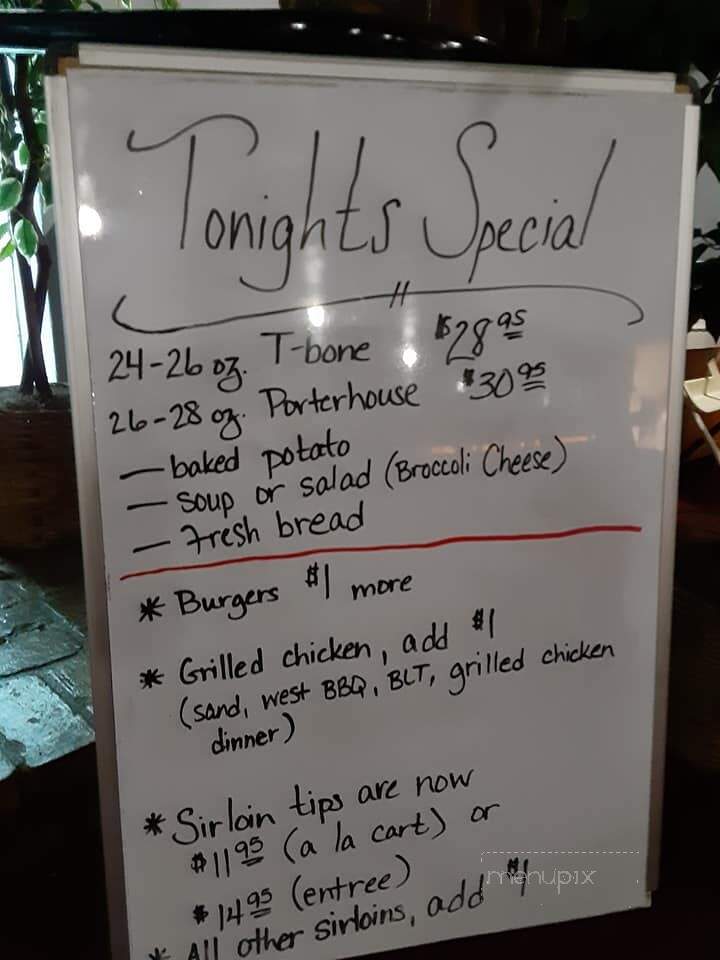 Tonights Special
24-26 oz. T-bone $28.95
26-28 oz. Porterhouse $30.95
— baked potato
— soup or salad (Broccoli Cheese)
— Fresh bread
* Burgers $1 more
* Grilled chicken, add $1
(sand, west BBQ, BLT, grilled chicken
dinner)
* Sirloin tips are now
$11.95 (a la cart) or
$14.95 (entree)
* All other sirloins, add $1
menupix